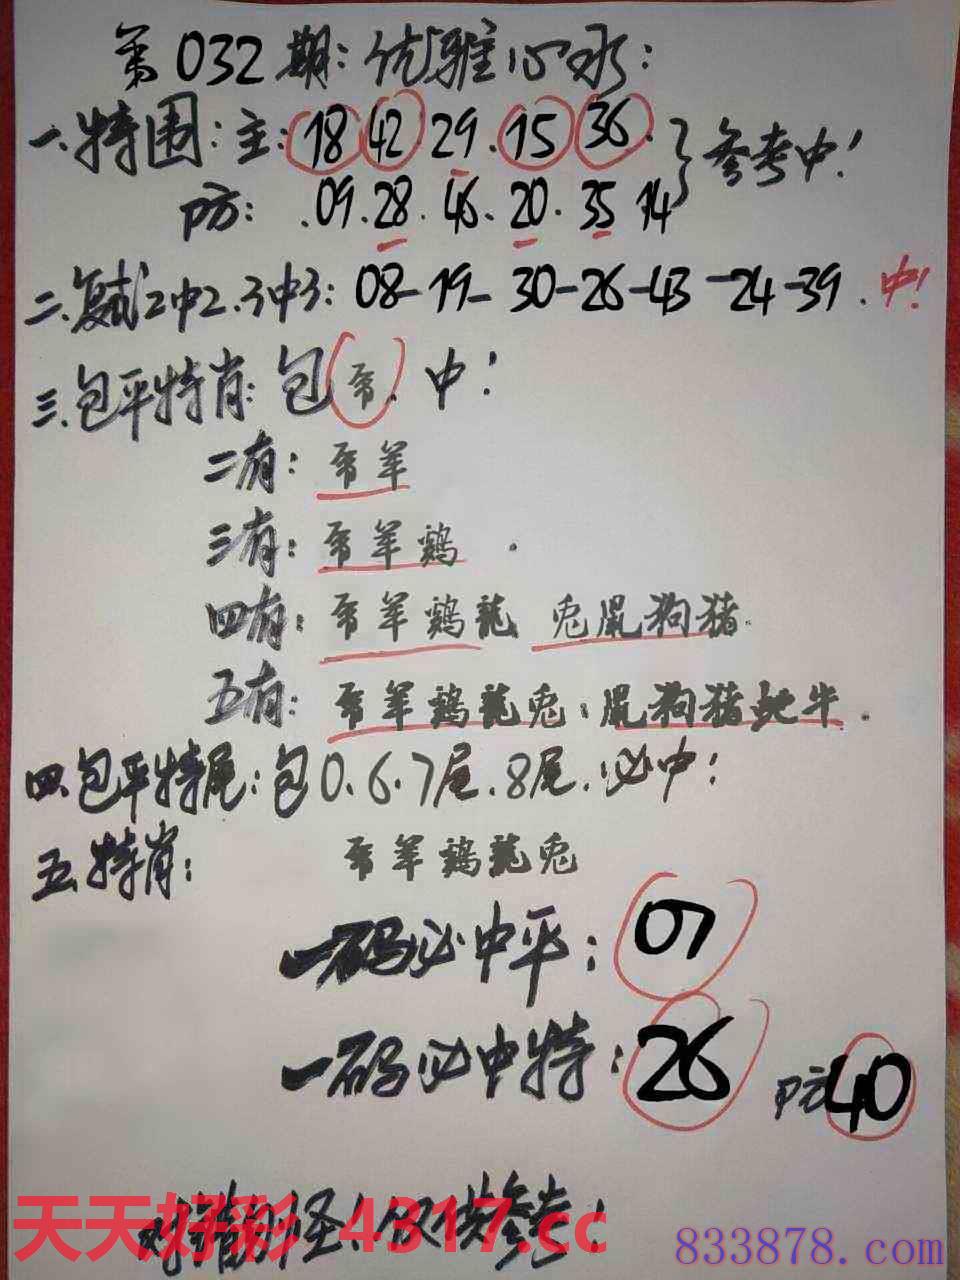 第032期:优雅心水:
一.特围:主:18 42 29.15 36.}参考中!
防: .09.28.46.20.35 14
二.复式2中2.3中3: 08-19-30-26-43-24-39.中!
三.包平特肖:包 . 中!
二有: 羊
三有: 羊鷄.
四有: 羊鷄龍 兔鼠狗猪.
五有: 羊鷄龍兔.鼠狗猪蛇牛.
四.包平特尾:包0.6.7尾.8尾.必中!
五.特肖: 羊鷄龍兔
一码必中平: 07
一码必中特: 26 防40
对错勿怪!仅供参考!
天天好彩 4317.cc
833878.com